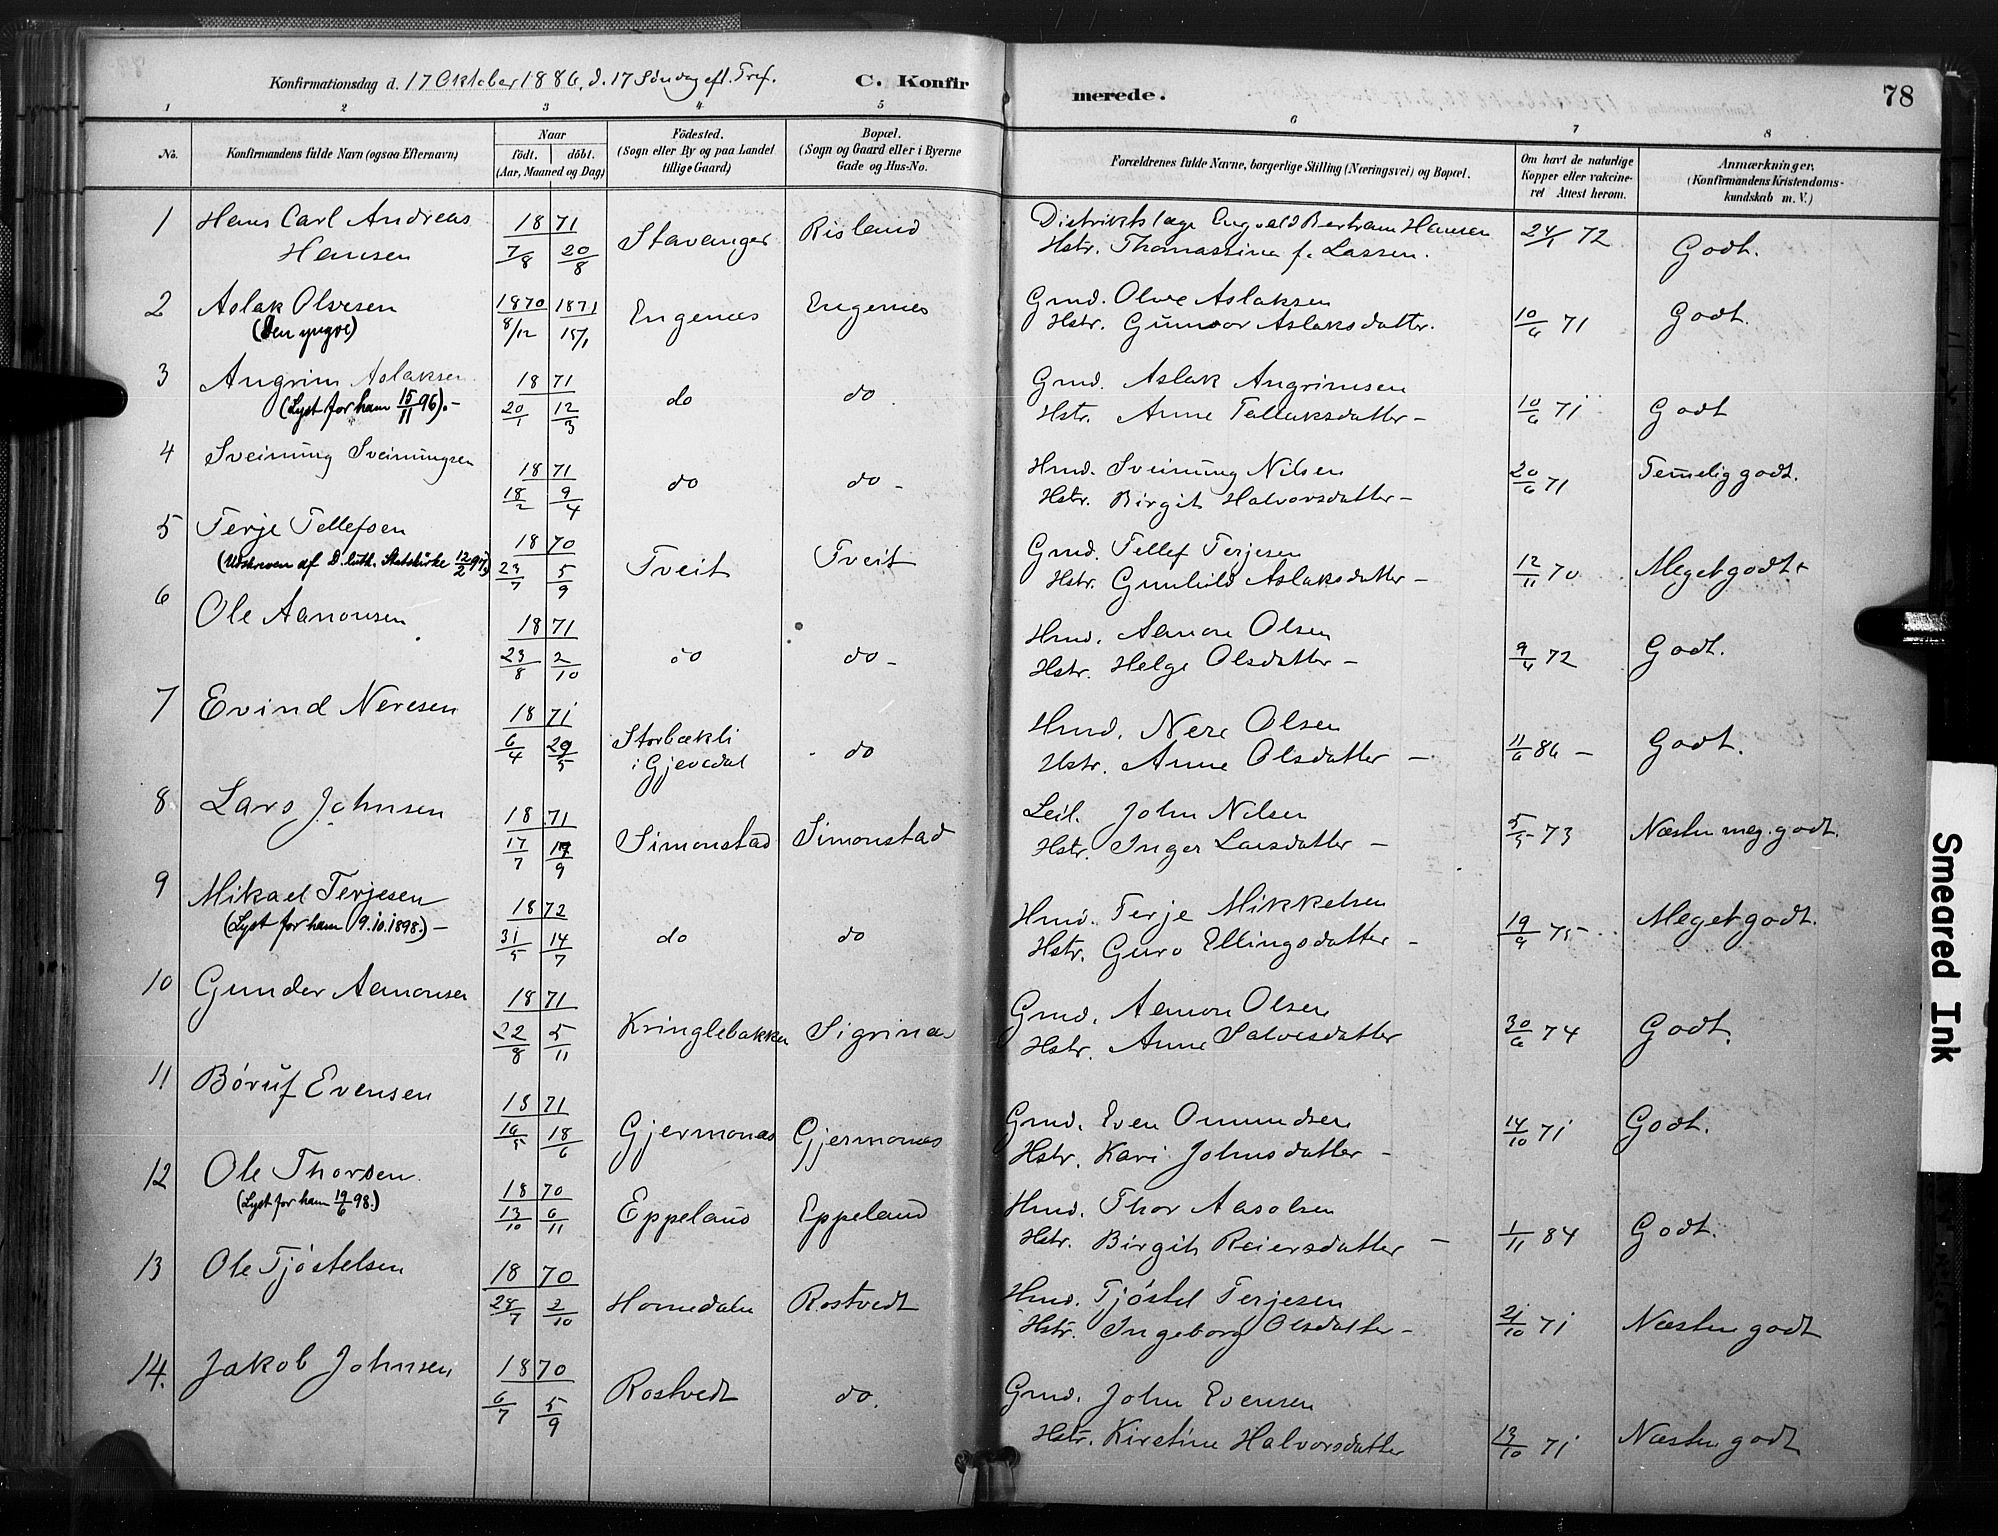 Konfirmationsdag d. 17 Oktober 1886, d. 17 Søndag eft. Tref. C. Konfir merede. 78
1 2 3 4 5 6 7 8
No.
Konfirmandens fulde Navn (ogsaa Efternavn)
Naar
födt. döbt.
(Aar, Maaned og Dag)
Födested.
(Sogn eller By og paa Landet
tillige Gaard)
Bopæl.
(Sogn og Gaard eller i Byerne
Gade og Hus-No.
Forældrenes fulde Navne, borgerlige Stilling (Næringsvei) og Bopæl.
Om havt de naturlige
Kopper eller vakcine-
ret Attest herom.
Anmærkninger,
(Konfirmandens Kristendoms-
kundskab m. V.)
1 Hans Carl Andreas 18 71 Stavanger Risland Distriktslæge Engvald Bertram Hansen 24/1 72 Godt.
Hansen 7/8 20/8 Hstr. Thomassine f. Lassen.
2 Aslak Olvesen 1870 1871 Engenes Engenes Gmd. Olve Aslaksen 10/6 71 Godt.
(Den yngre) 8/12 15/1 Hstr. Gunvor Aslaksdatter.
3 Angrim Aslaksen 18 71 do do Gmd. Aslak Angrimsen 10/6 71 Godt
(Lyst for ham 15/11 96).- 20/1 12/3 Hstr. Anne Tallaksdatter -
4 Sveinung Sveinungsen 18 71 do do - Hmd. Sveinung Nilsen 20/6 71 Temelig godt.
18/2 9/4 Hstr. Birgit Halvorsdatter -
5 Terje Tellefsen 18 70 Tveit Tveit Gmd. Tellef Terjesen 12/11 70 Meget godt
(Udskreven af D. luth. Statskirke 12/2 97) 23/7 5/9 Hstr. Gunhild Aslaksdatter -
6 Ole Aanonsen 18 71 do do - Hmd. Aanon Olsen 9/6 72 Godt.
23/8 2/10 Hstr. Helge Olsdatter -
7 Evind Neresen 18 71 Storbækli do Hmd. Nere Olsen 11/6 86 - Godt.
6/4 29/5 i Gjevedal Hstr. Anne Olsdatter -
8 Lars Johnsen 18 71 Simonstad Simonstad Leil. John Nilsen 5/5 73 Næsten meg. godt.
17/7 /9 Hstr. Inger Larsdatter -
9 Mikael Terjesen 18 72 do do Hmd. Terje Mikkelsen 19/9 75 Meget godt.
(Lyst for ham 9.10.1898.) - 31/5 14/7 Hstr. Guro Ellingsdatter -
10 Gunder Aanonsen 18 71 Kringlebakken Sigrinæs Gmd. Aanon Olsen 30/6 74 Godt.
22/8 5/11 Hstr. Anne Salvesdatter
11 Børuf Evensen 18 71 Gjermonæs Gjermonæs Gmd. Even Omundsen 14/10 71 Godt.
16/5 18/6 Hstr. Kari Johnsdatter -
12 Ole Thorsen 18 70 Eppeland Eppeland Hmd. Thor Aasolsen 1/11 84 Godt.
(Lyst for ham 19/6 98.) 13/10 6/11 Hstr. Birgit Reiersdatter -
13 Ole Tjøstelsen 18 70 Homedalen Rostvedt Hmd. Tjøstel Terjesen 21/10 71 Næsten godt
28/7 2/10 Hstr. Ingeborg Olsdatter -
14. Jakob Johnsen 18 70 Rostvedt do. Gmd. John Evensen 13/10 71 Næsten godt
6/7 5/9 Hstr. Kirstine Halvorsdatter
Smeared Ink